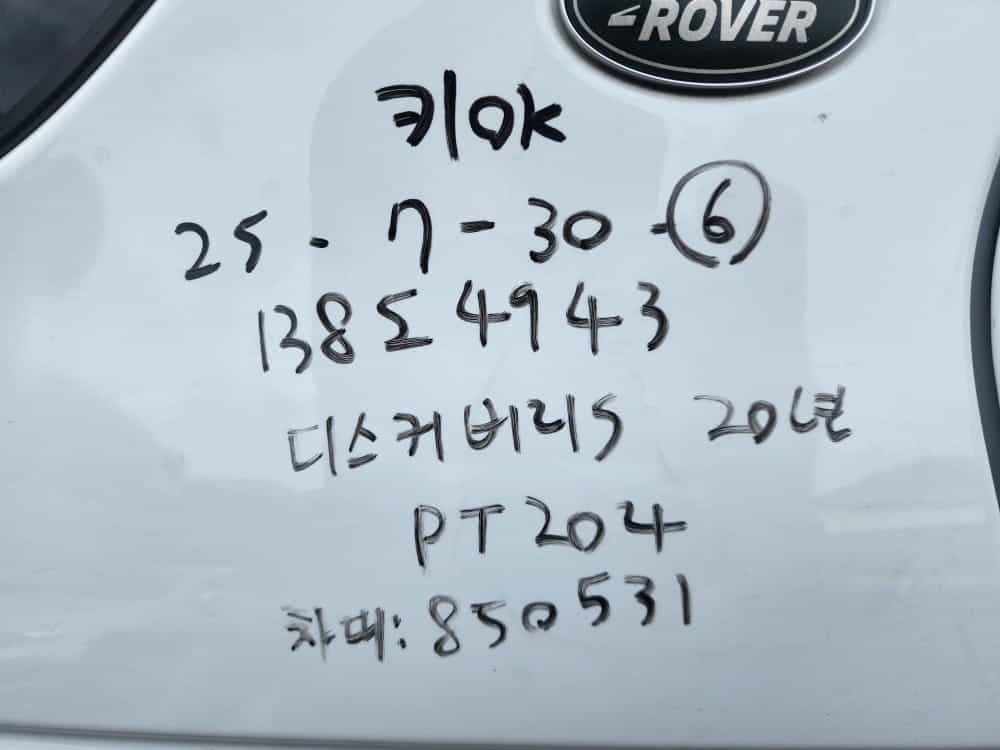 ROVER
키OK
25 - 7 - 30 - ⑥
138도 4943
디스커버리5 20년
PT204
차대: 850531